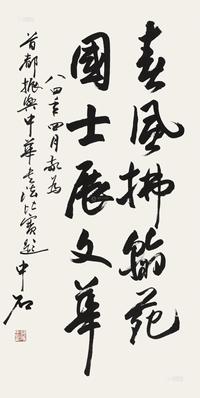 春風拂翰苑
國士展文華
八四年四月敬為
首都振興中華書法比賽題 中石